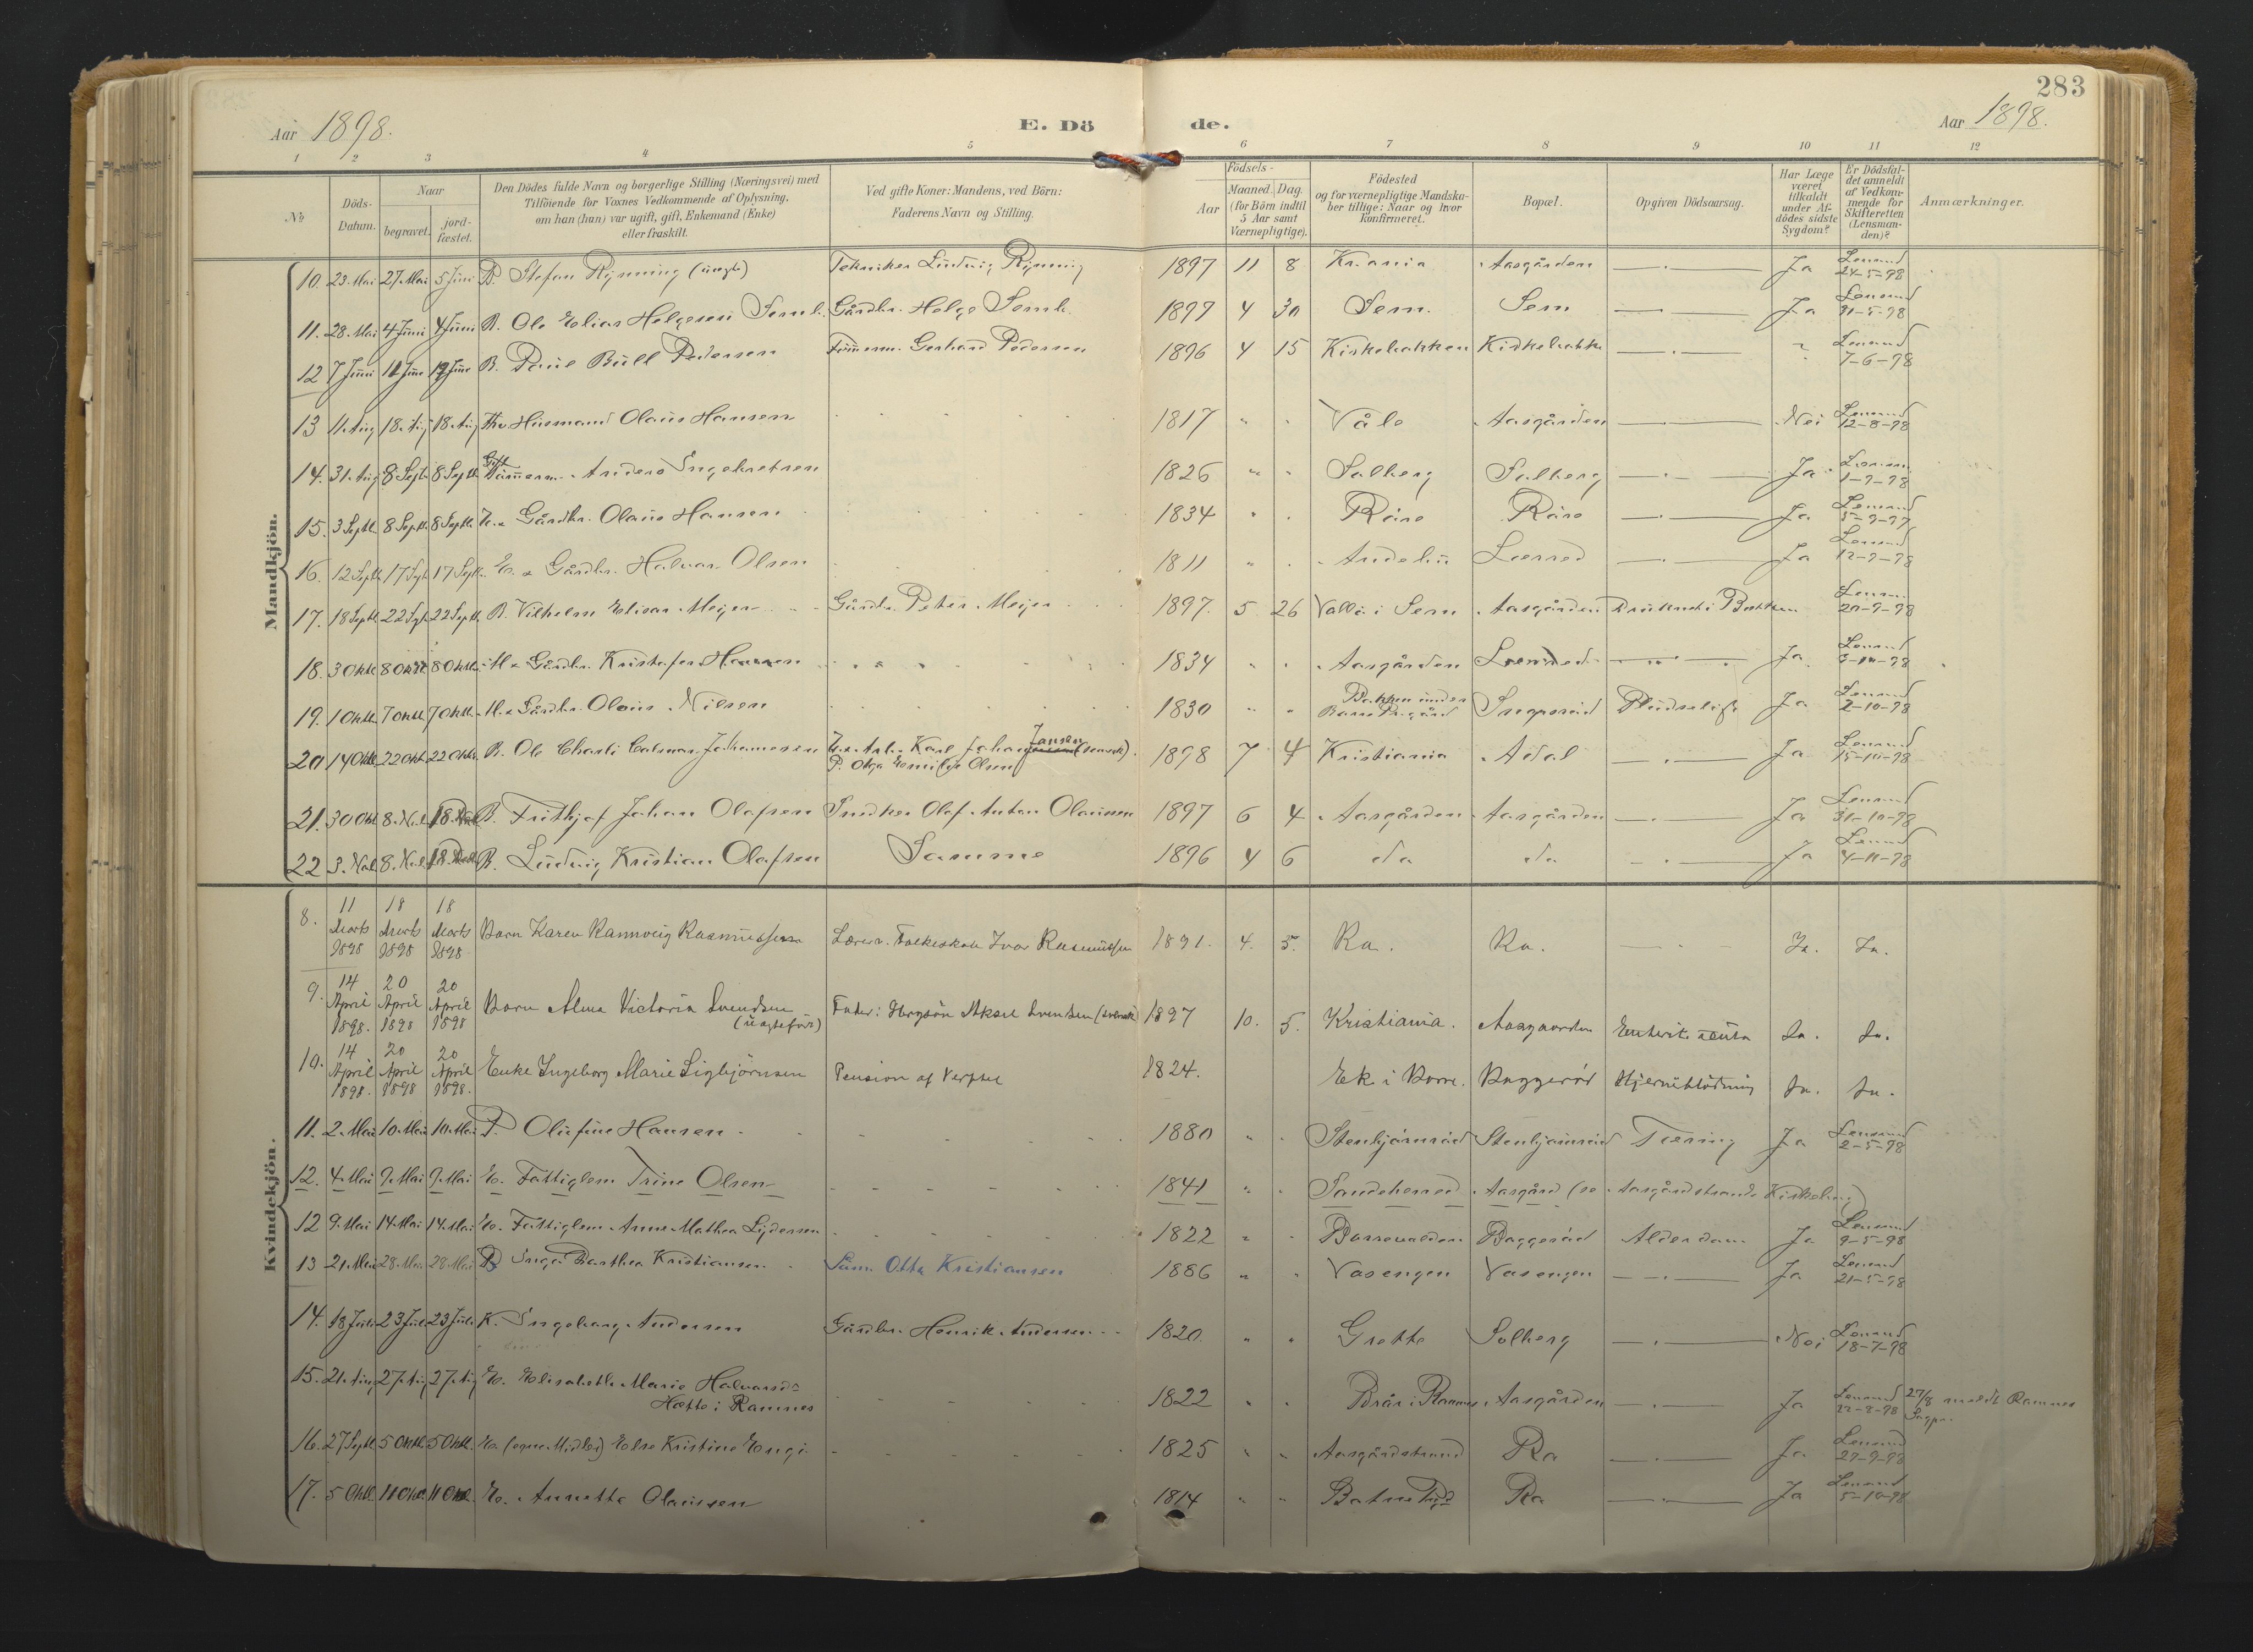 283
Aar 1898.
E. Dö de.
Aar 1898.
1 2 3 4 5 6 7 8 9 10 11 12
No.
Döds-Datum.
Naar
begravet.
jord-fæstet.
Den Dödes fulde Navn og borgerlige Stilling (Næringsvei) med
Tilföiende for Voxnes Vedkommende af Oplysning,
om han (hun) var ugift, gift, Enkemand (Enke)
eller fraskilt.
Ved gifte Koner: Mandens, ved Börn:
Faderens Navn og Stilling.
Födsels-
Aar
Maaned. Dag.
(for Börn indtil
5 Aar samt
Værnepligtige).
Födested
og for værnepligtige Mandska-
ber tillige: Naar og hvor
Konfirmeret.
Bopæl.
Opgiven Dödsaarsag.
Har Læge
været
tilkaldt
under Af-
dödes sidste
Sygdom?
Er Dödsfal-
det anmeldt
af Vedkom-
mende for
Skifteretten
(Lensman-
den)?
Anmærkninger.
Mandkjön.
10. 23. Mai 27. Mai 5 Juni B. Stefan Rynning (uægte) Tekniker Ludvig Rynning 1897 11 8 Kr.ania Aasgården Ja Lensmd 24-5-98
11. 28. Mai 4 Juni 4 Juni B. Ole Elias Helgesen Semb. Gårdbr. Helge Semb. 1897 4 30 Sem. Sem Ja Lensmd 31-5-98
12 7 Juni 11 Juni 19 Juni B. Paul Bull Pedersen Tømmerm. Gerhard Pedersen 1896 4 15 Kirkebakken Kirkebakke Lensmd 7-6-98
13 11. Aug 18. Aug 18. Aug Fhv. Husmand Olaus Hansen 1817 Våle Aasgården Nei Lensmd 12-8-98
14. 31. Aug 8 Septb. 8 Septb. Gift Tømmerm. Anders Engebretsen 1826 Solberg Solberg Ja Lensm 1-9-98
15. 3 Septb. 8 Septb. 8 Septb. Gårdbr. Olaus Hansen 1834 Røre Røre Ja Lensmd 5-9-97
16. 12 Septb 17 Septb 17 Septb. E. Gårdbr. Halvor Olsen 1811 Andebu Lerred Ja Lensmd 12-9-98
17. 18 Septb. 22 Septb. 22 Septb. B. Vilhelm Elias Meyer Gårdbr. Peter Meyer 1897. 5 26 Vallø i Sem Aasgården Druknet i Bækken Lensm. 20-9-98
18. 3 Oktb 8 Oktb 8 Oktb. M. Gårdbr. Kristofer Hansen 1834 Aasgården Lerred Ja Lensmd 3-10-98
19. 1 Oktb. 7 Oktb. 7 Oktb. M. Gårdbr. Olaus Nilsen 1830 Bakken under Borre Pr.gård Pludselig Ja Lensmd 2-10-98
20 14 Oktb. 22 Oktb 22 Oktb. B. Ole Charli Johannesen U. Arb. Karl Johan Jansen (svensk). P. Olga Emilie Olsen 1898 7 4 Kristiania Adal Ja Lensmd 15-10-98
21. 30 Okt 8. Nvb. 18. B. Frithjof Johan Olafsen Snedker Olaf Anton Olaussen 1897 6 4 Aasgården Aasgården Ja Lensmd 31-10-98
22 3. Nvb. 8. Nvb. 18. B. Ludvig Kristian Olafsen Samme 1896 4 6 do do Ja Lensmd 4-11-98
Kvindekjön.
8. 11 Marts 1898 18 Marts 1898 18 Marts 1898 Barn Karen Rannveig Rasmussen Lærer v. Folkeskole Ivar Rasmussen 1891. 4. 5. Ra. Ra. Ja. Ja.
9. 14 April 1898. 20 April 1898 20 April 1898 Barn Alma Victoria Svendsen (uægtefødt) Fader: Aksel Svendsen (svensk) 1897 10. 5. Kristiania. Aasgaarden Enterit. acuta Ja. Ja.
10. 14 April 1898. 20 April 1898 20 April 1898. Enke Ingeborg Marie Sigbjörnsen Pension af Verftet 1824. Ek i Borre. Baggerød Hjerneblödning Ja. Ja.
11. 2. Mai 10. Mai 10. Mai P. Olufine Hansen 1880 Stenbjörnrød Stenbjörnrød Tæring Ja Lensmd 2-5-98
12. 4. Mai 9. Mai 9. Mai E. Fattiglem Trine Olsen 1841 Sandeherred Aasgård (se Aasgårdstrands Kirkebog)
12 9. Mai 14. Mai 14. Mai E. Fattiglem Anne Mathea Lydersen 1822 Borrevolden Baggerød Alderdom Ja Lensmd 9-5-98
13 21. Mai 28. Mai 28. Mai P Inga Barthea Kristiansen Søm. Otto Kristiansen 1886 Vasengen Vasengen Ja Lensmd 21-5-98
14. 18 Juli 23 Juli 23 Juli K. Ingeborg Andersen Gårdbr. Henrik Andersen 1820. Grette Solberg Nei Lensmd 18-7-98
15. 21. Aug 27. Aug 27. Aug E. Elisabeth Marie Halvorsd. Hotte i Ramnes 1822 Brår i Ramnes Aasgården Ja Lensmd 22-8-98 27/8 meldt Ramnes Sogpr.
16. 27 Septb 5 Oktb. 5 Oktb. E. (egne Midler) Else Kristine Engø 1825 Aasgårdstrand Ra Ja Lensmd 27-9-98
17. 5 Oktb. 11 Oktb. 11 Oktb. E. Annette Olaussen 1814 Ra Ja Lensmd 5-10-98